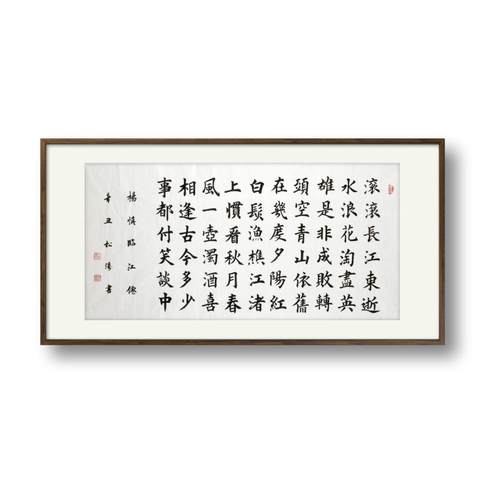 滾滾長江東逝
水浪花淘盡英
雄是非成敗轉
頭空青山依舊
在幾度夕陽紅
白髮漁樵江渚
上慣看秋月春
風一壺濁酒喜
相逢古今多少
事都付笑談中
楊慎臨江僊
辛丑松書